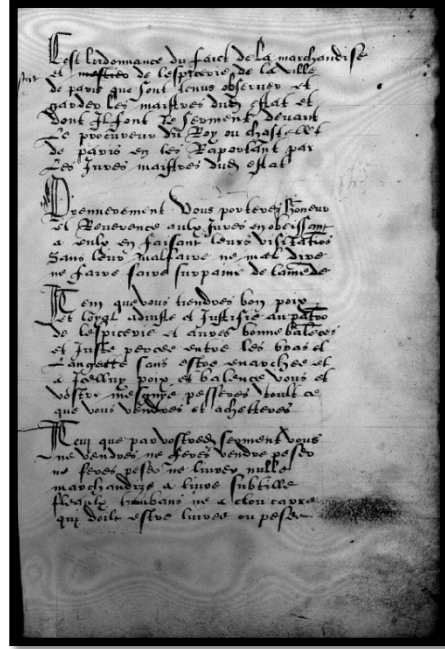 Cest lordonnance du faict de la marchandise
et mestier de lespicerie de la ville
de paris que sont tenus observer et
garder les maistres dud estat et
dont Ilz font le serment devant
le procureur du Roy ou chastellet
de paris en les Raportant par
les Jures maistres dud estat
premierement Vous porteres honeur
et Reverence aulx Jures en obeissant
a eulx en faisant leurs visitations
sans leur malfaire ne mal dire
ne faire faire sur paine de lamende
Item que vous tiendres bon poix
et loyal adjuste et Justifie au patro
de lespicerie et aures bonne balences
et Juste percee entre les bras et
langette sans estre
a Icelluy poix et balence vous et
vostre mesgnye peseres toult ce
que vous vendres et achetteres
Item que par vostred serment vous
ne vendres ne feres vendre peser
ne feres peser ne livrer nulle
marchandize a livre subtille
ne a clou
qui doibt estre livree ou pesee